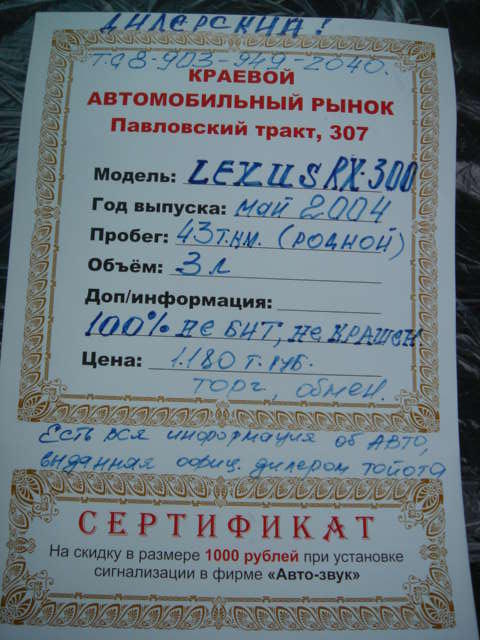 ДИЛЕРСКИЙ!
т.с 8-903-949-2040.
КРАЕВОЙ
АВТОМОБИЛЬНЫЙ РЫНОК
Павловский тракт, 307
Модель: LEXUS RX-300
Год выпуска: май 2004
Пробег: 43 т.км. (РОДНОЙ)
Объём: 3 л
Доп/информация:
100% НЕ БИТ, НЕ КРАШЕН
Цена: 1.180 т. руб.
торг, обмен.
Есть вся информация об авто,
выданная офиц. дилером тойота
СЕРТИФИКАТ
На скидку в размере 1000 рублей при установке
сигнализации в фирме «Авто-звук»